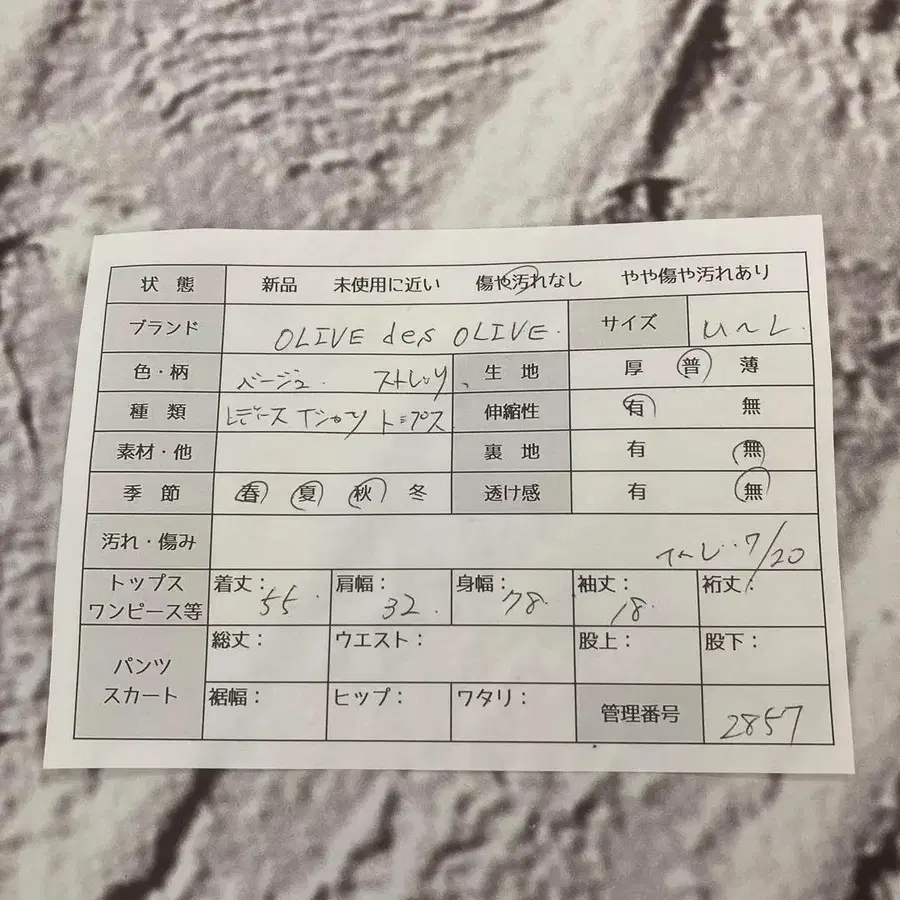 状 態 新品 未使用に近い 傷や汚れなし やや傷や汚れあり
ブランド OLIVE des OLIVE. サイズ M〜L
色・柄 ベージュ. 生 地 厚 普 薄
種 類 レディース トップス 伸縮性 有 無
素材・他 裏 地 有 無
季 節 春 夏 秋 冬 透け感 有 無
汚れ・傷み 7/20
トップス ワンピース等 着丈: 55. 肩幅: 32. 身幅: 78. 袖丈: 18. 裄丈:
パンツ スカート 総丈: ウエスト: 股上: 股下:
裾幅: ヒップ: ワタリ: 管理番号 2857